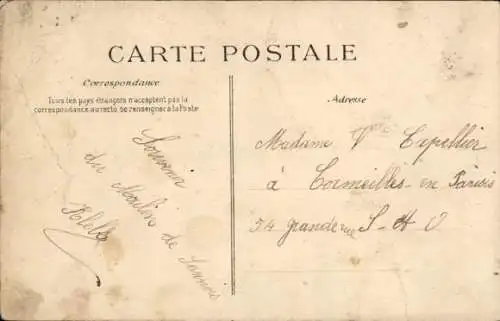 CARTE POSTALE
Correspondance
Tous les pays étrangers n'acceptent pas la
correspondance au recto se renseigner à la Poste
Souvenir
du Moulin de Sannois
Adresse
Madame V Crpellier
à Cormeilles-en Parisis
54 grande rue S-&-O